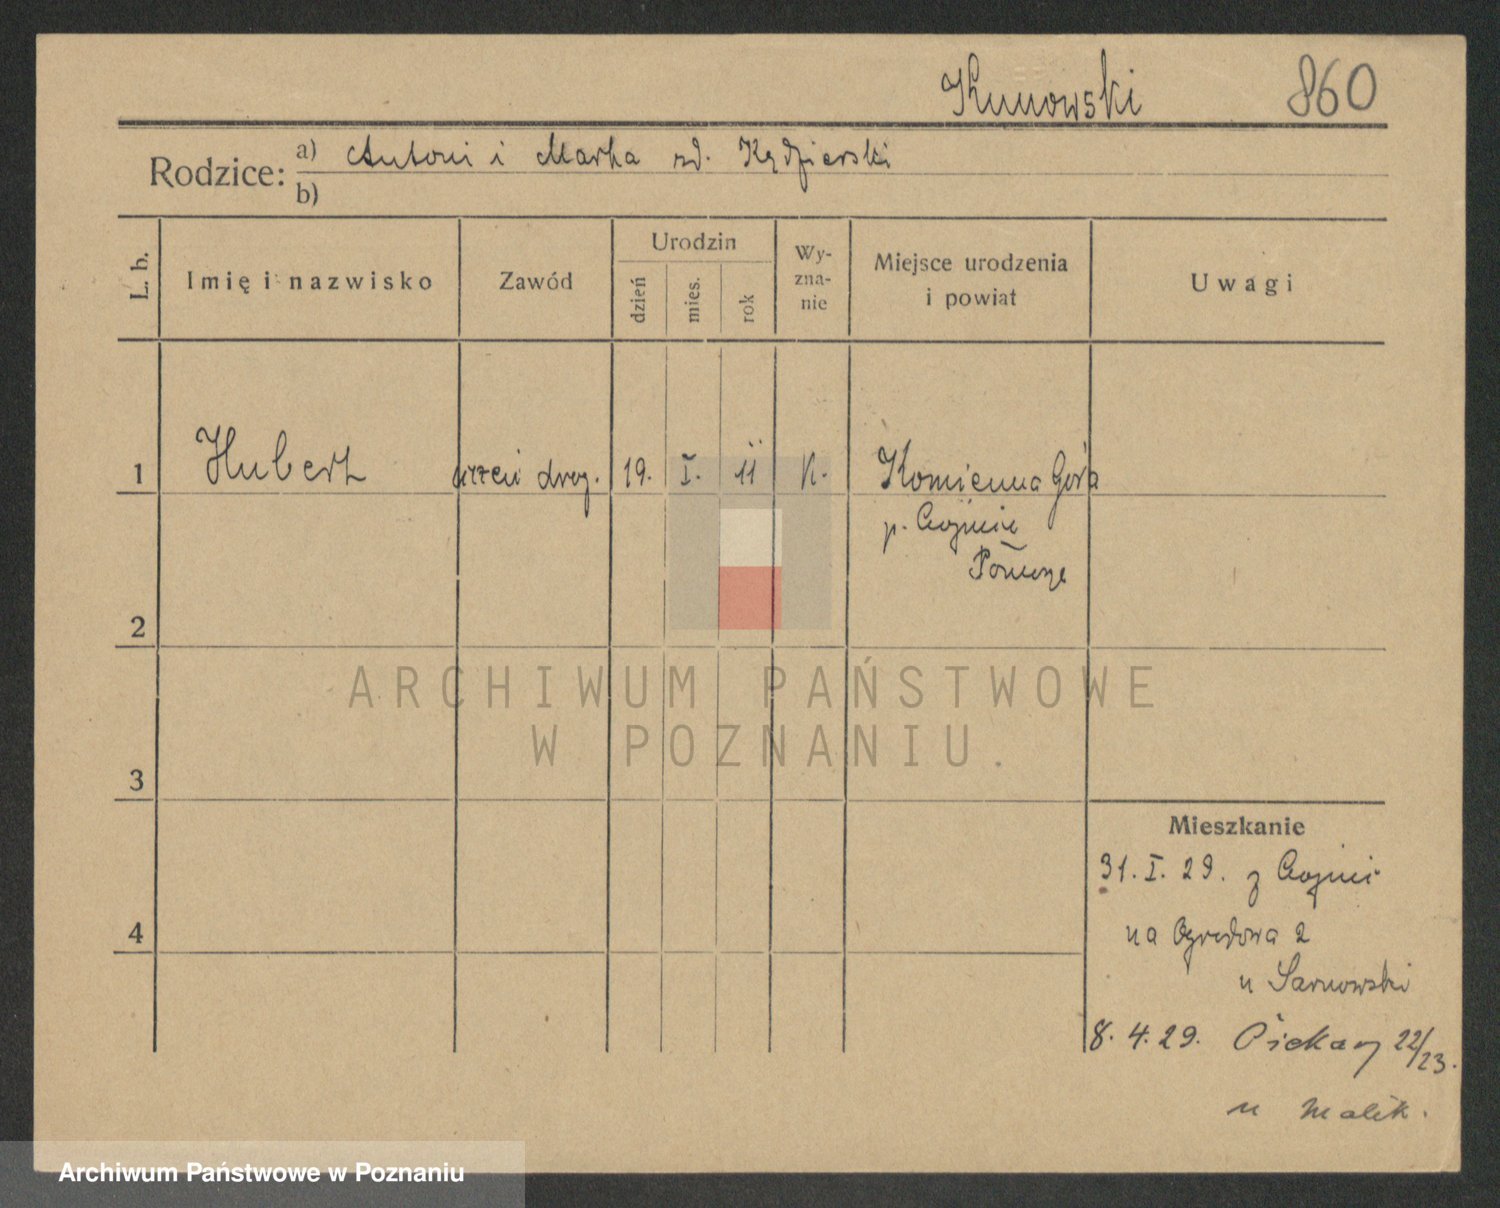 Kunowski 860
Rodzice: a) Antoni i Marta zd. Kędzierski
b)
L. b. Imię i nazwisko Zawód Urodzin dzień mies. rok Wy-zna-nie Miejsce urodzenia i powiat Uwagi
1 Hubert uczeń drog. 19. I. 11 k. Kamienna Góra
p. Chojnice
Pomorze
2
ARCHIWUM PAŃSTWOWE
W POZNANIU.
3
Mieszkanie
31. I. 29. z Chojnic
4 na Ogrodowa 2
u Sarnowski
8. 4. 29. Piekary 22/23.
u Malik.
Archiwum Państwowe w Poznaniu